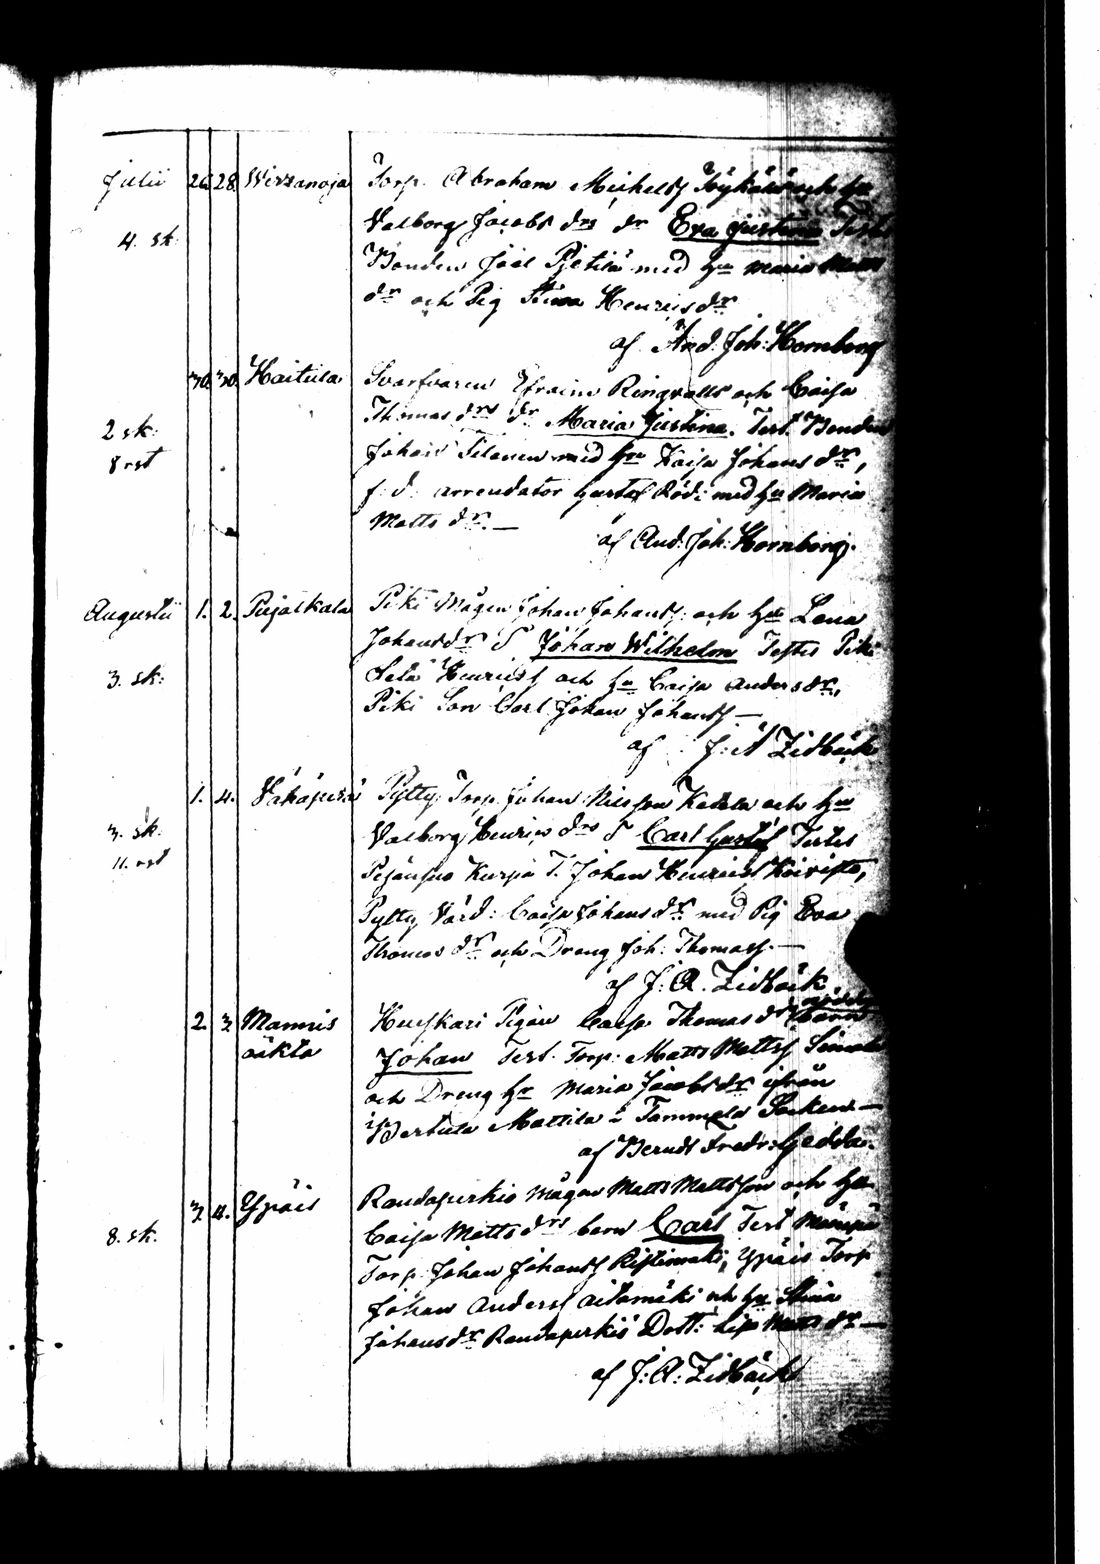 Julii 26. 28. Wirzanoja Torp. Abraham Michelss och hu
4. sk. Valborg Jacobs drs dr Eva Justina Test.
Bonden Joel Pietilä med hu Maria Matts
dr och Pig Stina Henricsdr
af And. Joh: Hornborg
30. 30. Haitula Svarfvaren Efraim Ringvalls och Caisa
2 sk: Thomas drs dr Maria Justina. Test. Bonden
8 rst Johan Tilanen med hu Kaisa Johans dr,
f: d. arrendator Gustaf Rödi med hu Maria
Matts dr. —
af And. Joh. Hornborg.
Augusti 1. 2. Pujalkala Piki Mågen Johan Johanss: och hu Lena
Johansdr S Johan Wilhelm Testes Piki
3. sk: Henricss och hu Caisa Andersdr,
Piki Son Carl Johan Johanss —
af J: A Zidbäck
1. 4. Vähäpirä Pytty Torp. Johan Nilsson Katila och hu
3. sk. Valborg Henrics drs S Carl Gustaf Testes
11. rst Kurpa T. Johan Henricss Koivisto,
Pytty Värd: Caisa Johans dr med Pig Eva
Thomas dr och Dreng Joh: Thomass. —
af J. A. Zidbäck
2. 3. Mannis Huuskari Pigan Caisa Thomas dr Barn
äikta Johan Test. Torp: Matts Mattss
och Dreng hr Maria Jacobsdr ifrån
Pertula Mattila i Tammela Socken —
af Berndt Fredr: Gedda.
3. 4. Ypäis Randaperkio Mågen Matts Mattsson och hu
8. sk. Caisa Matts drs barn Carl Test
Torp. Johan Johanss Ristimäki, Ypäis Torp
Johan Anderss Aitamäki och hu Stina
Johansdr Randaperkiö Dott: Lisa Matts dr —
af J: A: Zidbäck